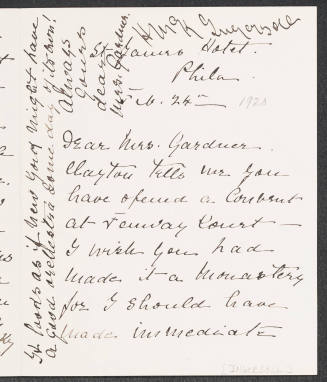 St. James Hotel.
Phila
Feb. 24th
1920
Dear Mrs. Gardner.
Clayton tells me you
have opened a Convent
at Fenway Court —
I wish you had
made it a Monastery
for I should have
made immediate
It looks as if New York might have
a good orchestra some day of its own!
Always
yours
dear
Mrs. Gardner.
Ingersoll